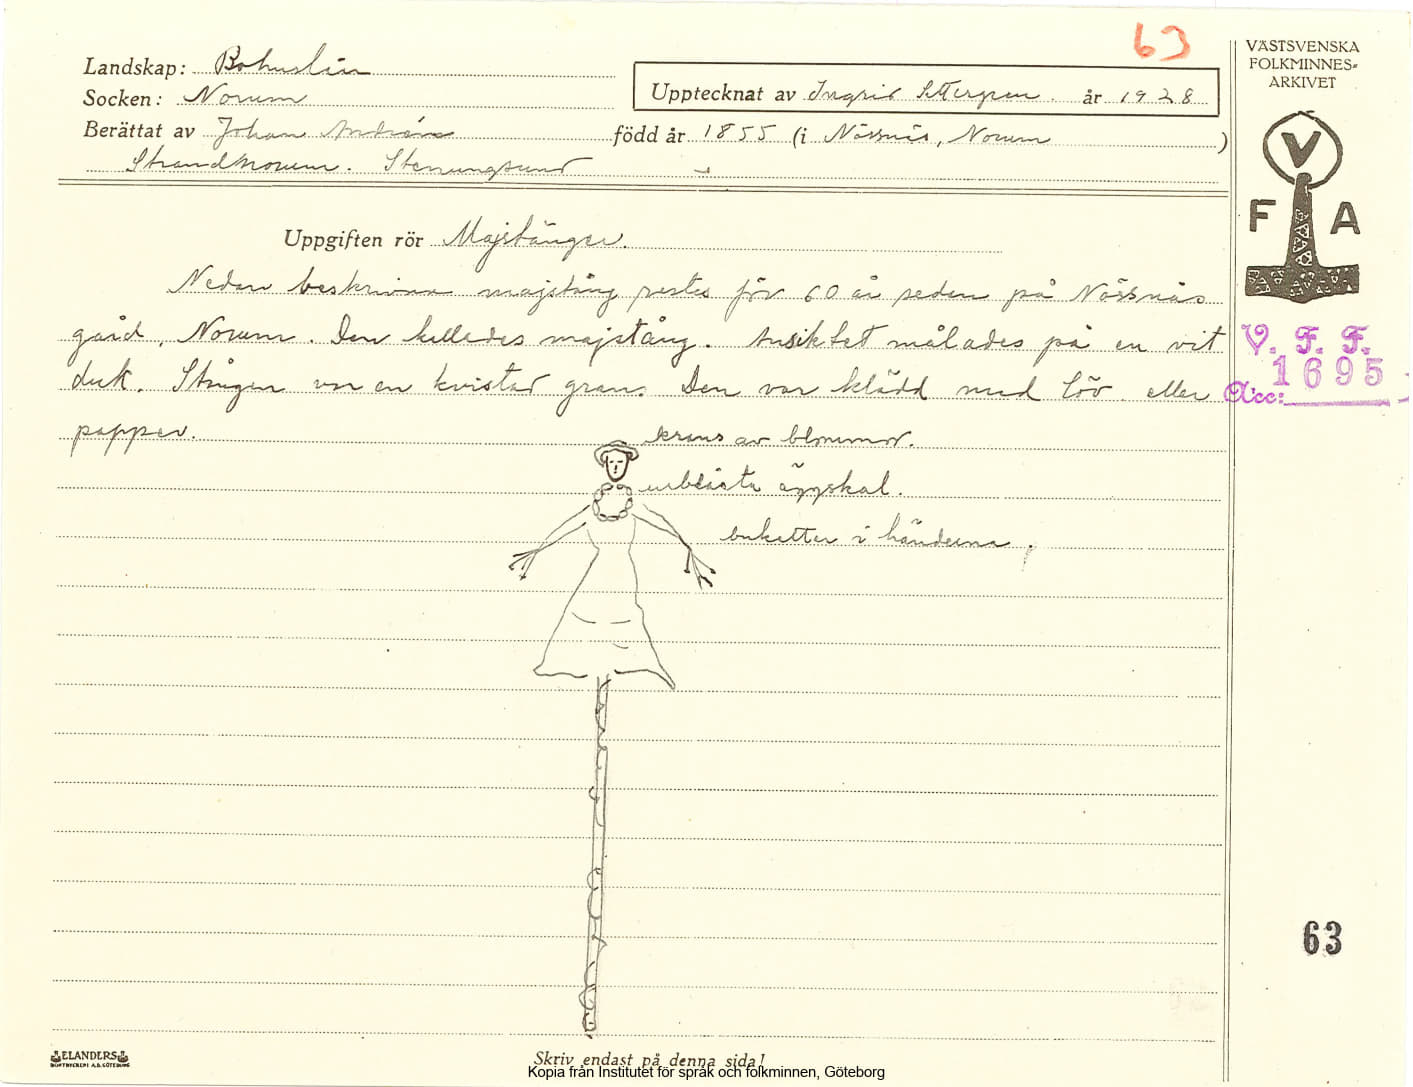 63
VÄSTSVENSKA
FOLKMINNES-
ARKIVET
Landskap: Bohuslän
Socken: Norum
Upptecknat av Ingrid Settergren. år 1928
Berättat av Johan Andreas född år 1855 (i Nössnäs, Norum )
Strandnorum. Stenungsund
V
F A
Uppgiften rör Majstänger.
Nedan beskrivna majstång restes för 60 år sedan på Nössnäs
gård, Norum. Den kallades majstång. Ansiktet målades på en vit
duk. Stången var en kvistad gran. Den var klädd med löv eller
papper.
V. F. F.
Acc: 1695
krans av blommor.
urblåsta äggskal.
buketter i händerna.
63
ELANDERS
BOKTRYCKERI A.B. GÖTEBORG
Skriv endast på denna sida!
Kopia från Institutet för språk och folkminnen, Göteborg